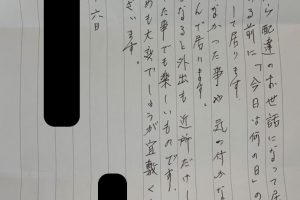 ら配達のお世話になって居
る前に「今日は何の日」の
して居ります。
なかった事や気の付かな
んで居ります。
なると外出も近所だけ
た事でも楽しいものです。
めも大変でしょうが宜敷く
ざいます。
六日